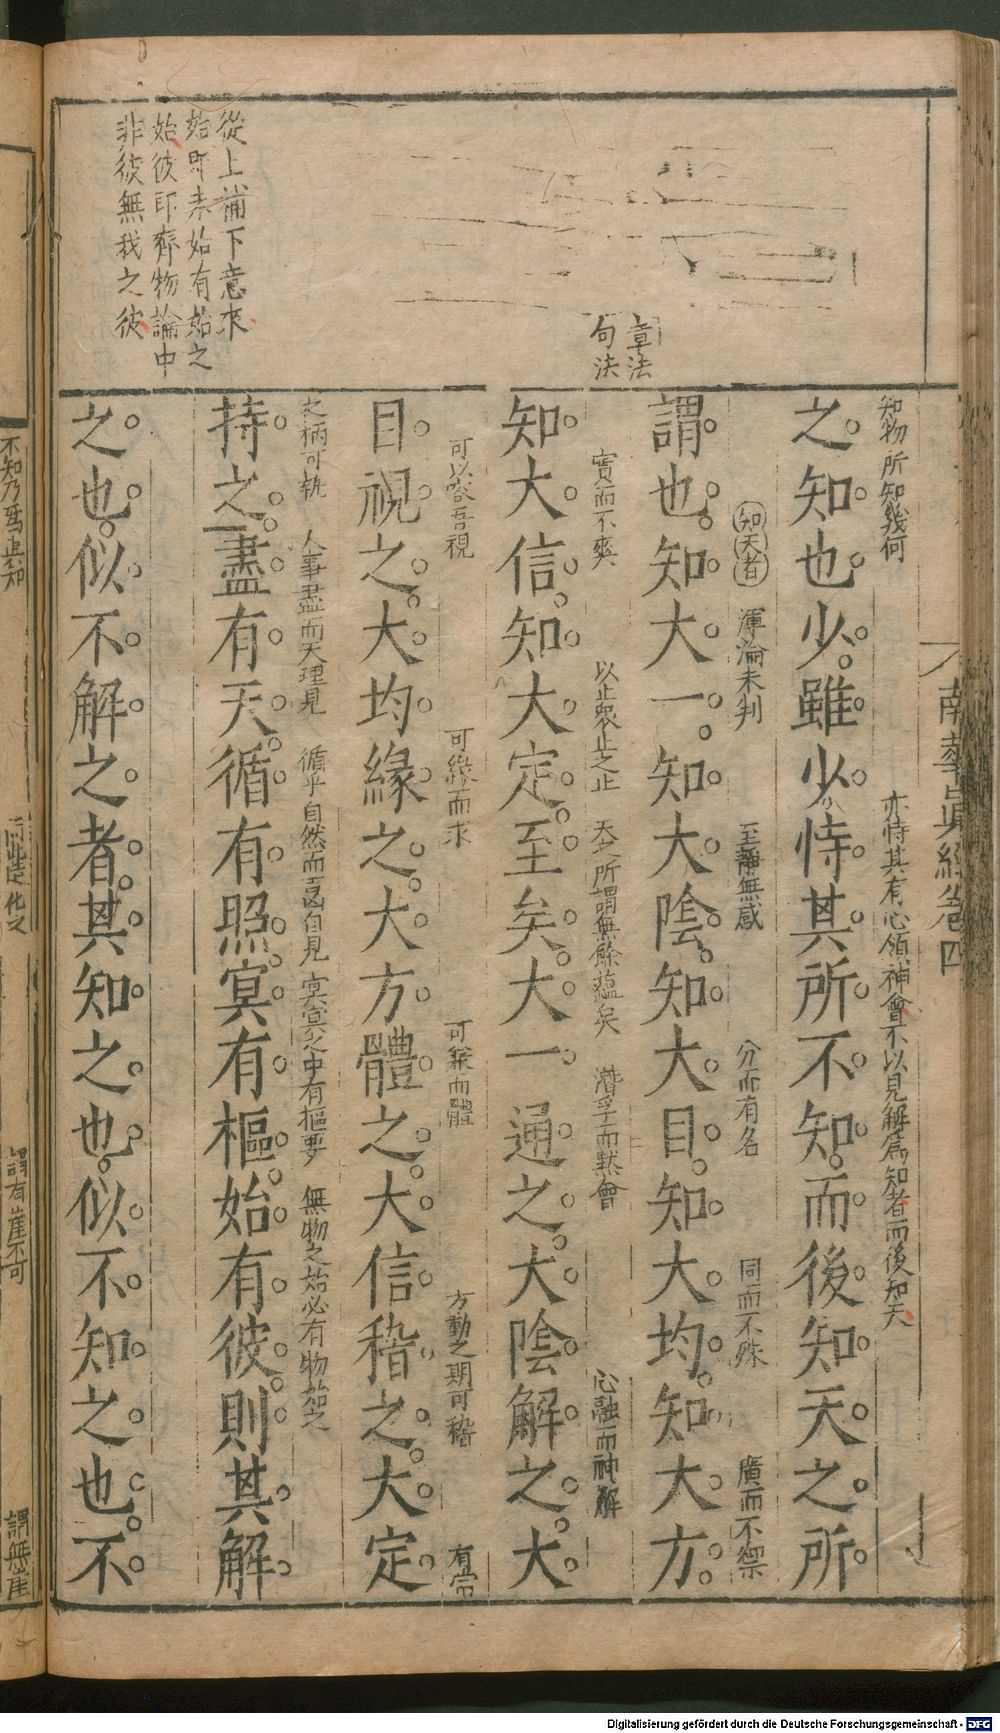 南華眞經卷四
知物所知幾何
亦恃其有心領神會不以見解爲知者而後知天
之知也少雖少恃其所不知而後知天之所
知天者
渾淪未判
至靜無感
分而有名
同而不殊
廣而不禦
謂也知大一知大陰知大目知大均知大方
章法
句法
實而不爽
以止衆止之止
天之所謂無餘蘊矣
潛孚而黙會
心融而神解
知大信知大定至矣大一通之大陰解之大
可以容吾視
可緣而求
可兼而體
方動之期可稽
有常
目視之大均緣之大方體之大信稽之大定
之柄可執
人事盡而天理見
循乎自然而
自見
冥冥之中有樞要
無物之始必有物始之
持之盡有天循有照冥有樞始有彼則其解
從上補下意來
始即未始有始之
始彼即齊物論中
非彼無我之彼
之也似不解之者其知之也似不知之也不
不知乃爲眞知
造化之
謂有崖不可
謂無崖
Digitalisierung gefördert durch die Deutsche Forschungsgemeinschaft - DFG